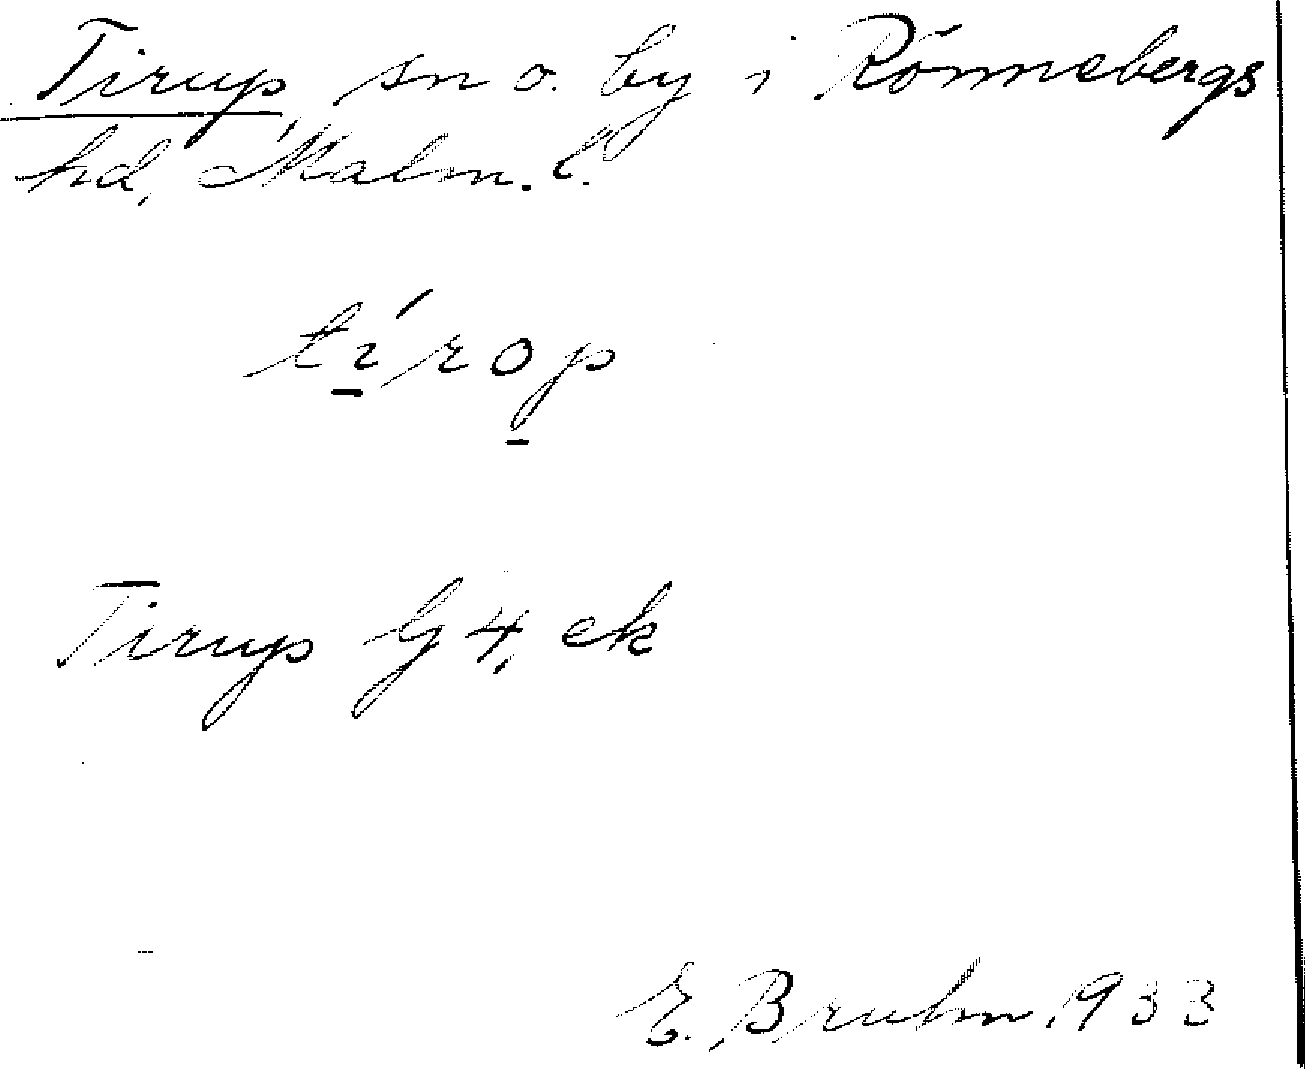 Tirup, sn o. by i Rönnebergs
hd, Malm. l.
tírop
Tirup G 4, ek
E. Bruhn 1933